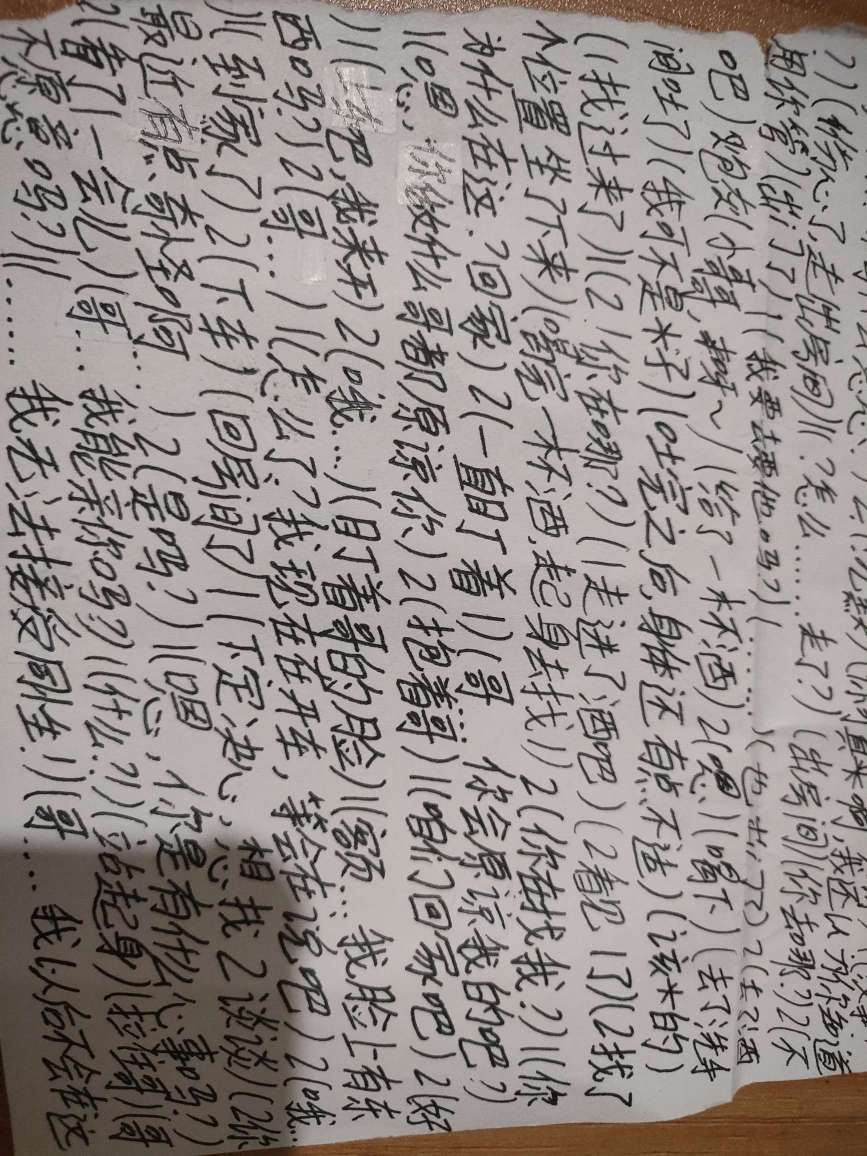 我还以为你知道
2)(伤心了,走出房间)1(?怎么……走了?)(出房间)(你去哪?)2(不
用你管)(出门了)1(我要去要他吗?)(……)(也出门了)2(去了酒
吧)炮灰(小哥哥,来呀~)(给了一杯酒)2(嗯)(喝下)(去了洗手
间吐了)(我可不是木子)(吐完之后,身体还有点不适)(该*的)
(1找过来了)1(2!你在哪?)(1走进了酒吧)(2看见1了)(2找了
个位置坐了下来)(喝完一杯酒,起身去找1)2(你在找我?)1(你
为什么在这?回家)2(一直盯着1)(哥…你会原谅我的吧?)
1(嗯,你做什么哥都原谅你)2(抱着哥)1(咱们回家吧)2(好
)1(上车吧,我来开)2(哦…)(盯着哥的脸)1(额…我脸上有东
西吗?)2(哥…)1(怎么了?我现在在开车,等会在说吧)2(哦…
)1(到家了)2(下车)(回房间了)1(下定决心,想找2谈谈)(2你
最近有点奇怪啊…)2(是吗?)1(嗯,你是有什么心事吗?)
2(看了1一会儿)(哥…我能亲你吗?)1(什么?!)(站起身)(拉住哥)(哥
不愿意吗?)1(……我无法接受同性!)(哥……我以后不会在这